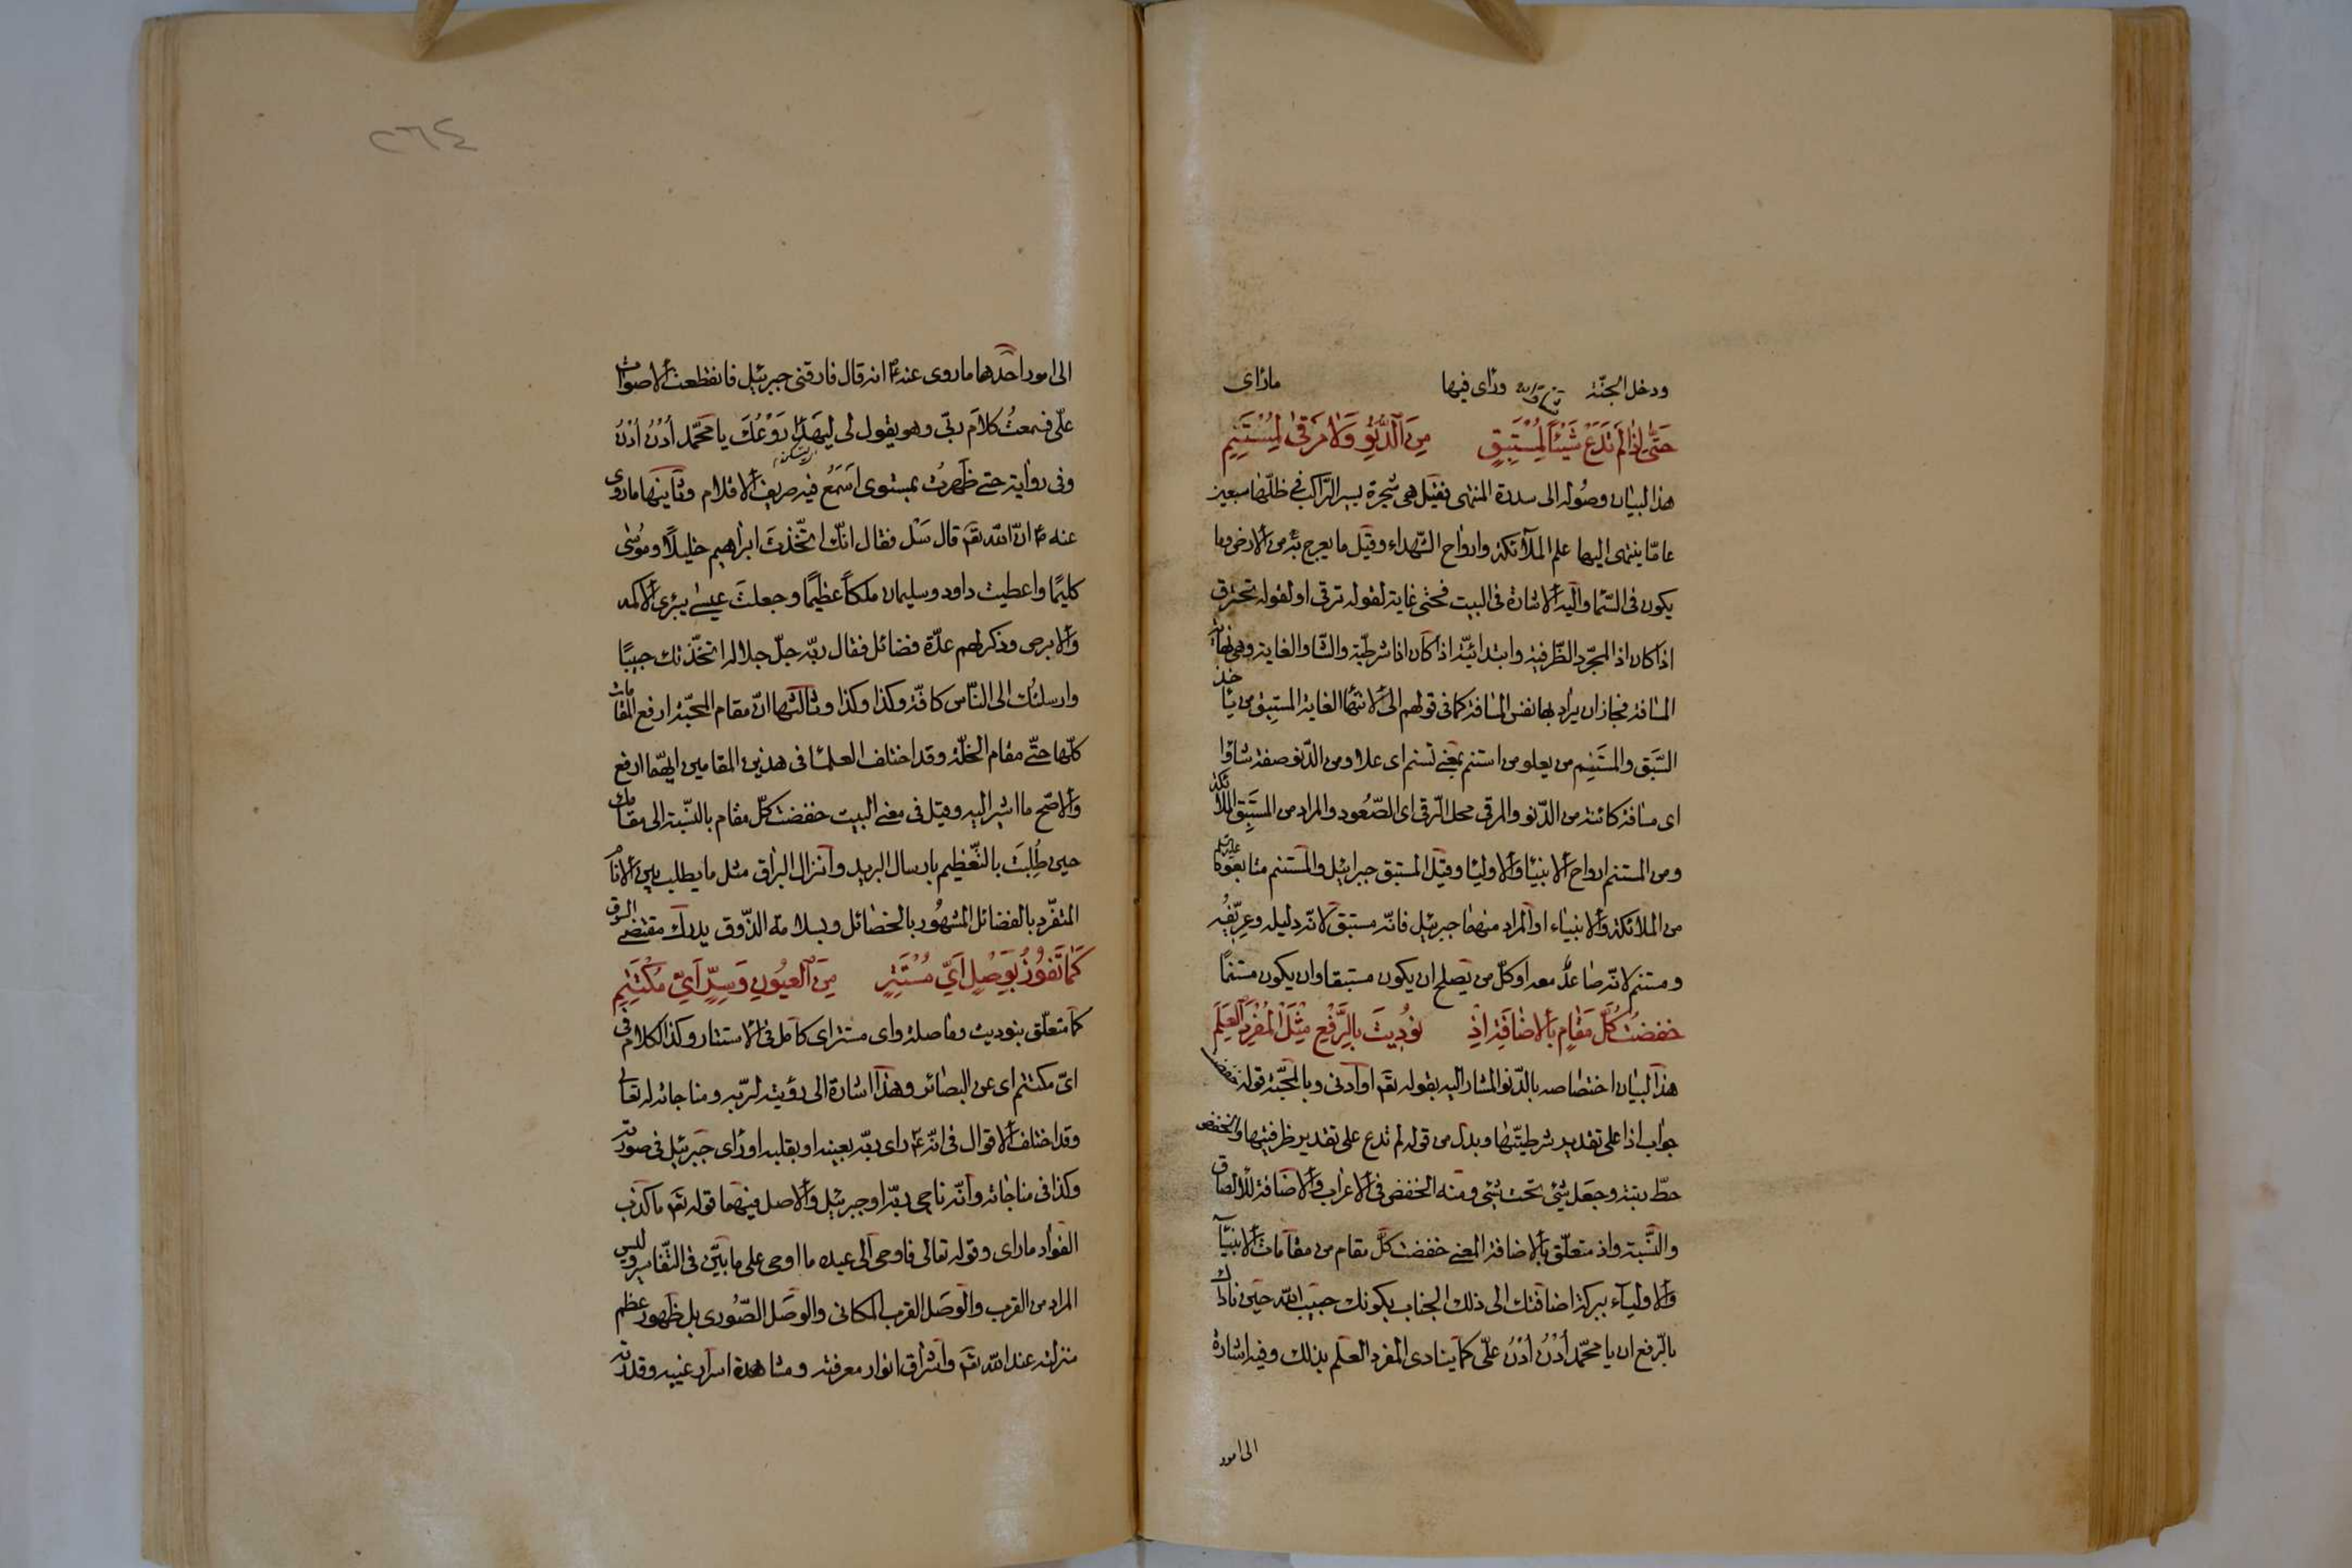 ودخل الجنّة ورأى فيها مارأى
حَتّٰى اِذَا لَمْ تَدَعْ شَيْئًا لِمُسْتَبِقٍ مِنَ الدُّنُوِّ وَلَا مَرْقٰى لِمُسْتَنِمِ
هذا لبيان وصوله الى سدرة المنتهى فقيل هى شجرة يسير الراكب فى ظلّها سبعين
عامّا ينتهى اليها علم الملائكة وارواح الشّهداء وقيل ما يعرج به من الارض وما
يكون فى السّما واليه الاشارة فى البيت فحتى غاية لقوله ترقى او لقوله تخترق
اذا كان اذا لمجرّد الظّرفية وابتدائيّة اذا كان اذا شرطيّة والشاو الغاية وهى نهاية
المسافة فجاز ان يراد بها نفس المسافة كما فى قولهم الى لانتهاء الغاية المستبق من ياخذ
السّبق والمستنم من يعلو من استنم بمعنى تسنم اى علا ومن الدّنو صفة شاوا
اى مسافة كائنة من الدّنو والمرقى محل الرّقى اى الصّعود والمراد من المستبق الملائكة
ومن المستنم ارواح الانبيا والاوليا وقيل المستبق جبرائيل والمستنم متابعوه
من الملائكة والانبياء او المراد منهما جبرئيل فانّه مستبق لانّه دليله وعرّيفه
ومستنم لانّه صاعد معه او كلّ من يصلح ان يكون مستبقا وان يكون مستنمًا
خَفَضْتَ كُلَّ مَقَامٍ بِالْاِضَافَةِ اِذْ نُودِيتَ بِالرَّفْعِ مِثْلَ الْمُفْرَدِ الْعَلَمِ
هذا لبيان اختصاصه بالدّنو المشار اليه بقوله تع او ادنى وبالمحبّة قوله خفضت
جواب اذا على تقدير شرطيّتها وبدل من قوله لم تدع على تقدير ظرفيتها والخفض
حطّ رتبة وجعل شئ تحت شئ ومنه الخفض فى الاعراب والاضافة للالصاق
والنّسبة واذ متعلّق بالاضافة المعنى خفضت كلّ مقام من مقامات الانبيآ
والاوليآء ببركة اضافتك الى ذلك الجناب بكونك حبيب الله حين ناداك
بالرّفع ان يا محمّد اُدْنُ اُدْنُ علّى كما ينادى المفرد العلم بذلك وفيه اشارة
الى امور
٢٦٤
الى امور احدها ما روى عنه انه قال فارقنى جبرئيل فانقطعت الاصوات
علّى فسمعتُ كلامَ ربّى وهو يقول لى ليهدا رَوْعُكَ يا محمّد اُدْنُ اُدْنُ
وفى رواية حتى ظهرتُ بمستوى اسمَعُ فيه صريف الاقلام وثانيها ما روى
عنه انّ الله تع قال سَلْ فقال انّك اتّخذتَ ابراهيم خليلًا وموسٰى
كليمًا واعطيت داود وسليمان ملكًا عظيمًا وجعلتَ عيسى يبرئ الاكمه
والابرص وذكر لهم عدّة فضائل فقال ربّه جلّ جلاله اتخذتك حبيبًا
وارسلتك الى النّاس كافّة وكذا وكذا وثالثها انّ مقام المحبّة ارفع المقامات
كلّها حتّى مقام الخلّة وقد اختلف العلما فى هذين المقامين ايّهما ارفع
والاصّح ما اشير اليه وقيل فى معنى البيت خفضت كلّ مقام بالنّسبة الى مقامك
حين طُلِبتَ بالتّعظيم بارسال البريد وانزال البراق مثل ما يطلب بين الانام
المتفرّد بالفضائل المشهور بالخصائل وبسلامة الذّوق يدرك مقتضى السوق
كَمَا تَفُوزُ بِوَصْلٍ اَىِّ مُسْتَتِرٍ مِنَ الْعُيُونِ وَسِرٍّ اَىِّ مُكْتَتِمِ
كما متعلّق بنوديت وما صلة واى مستتر اى كامل فى الاستتار وكذا الكلام فى
اىّ مكتتم اى عن البصائر وهذا اشارة الى رؤيته لربّه ومناجاته له تعالى
وقد اختلف الاقوال فى انّه راى ربّه بعينه او بقلبه او راى جبرئيل فى صورته
وكذا فى مناجاته وانّه ناجى ربّه او جبرئيل والاصل فيهما قوله تع ما كذب
الفؤاد ما راى وقوله تعالى فاوحى الى عبده ما اوحى على ما بيّن فى التّفاسير وليس
المراد من القرب والوصل القرب المكانى والوصل الصّورى بل ظهور عظم
منزلته عند الله تع واشراق انوار معرفته ومشاهدة اسرار غيبه وقدرته